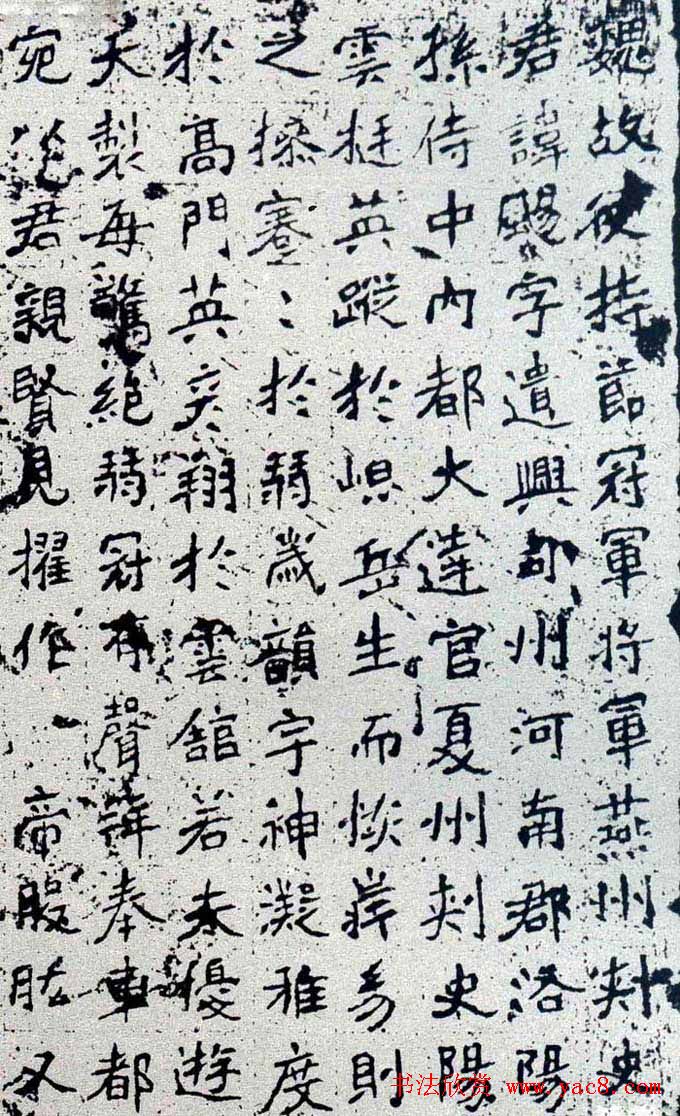 魏故使持節冠軍将軍燕州刾史
君諱颺字遺興司州河南郡洛陽
孫侍中內都大達官夏州刾史陽
雲挺英蹤於崐岳生而則
之操蹇〻於弱歲韻宇神凝雅度
於高門英奕翔於雲舘若夫優遊
天製每驚絕弱冠有聲解奉車都
宛從君親賢見擢作 帝股肱又
书法欣赏 www.yac8.com